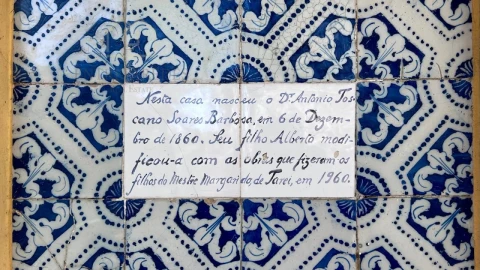 Nesta casa nasceu o Dr. António Tos-
cano Soares Barbosa, em 6 de Dezem-
bro de 1860. Seu filho Alberto modi-
ficou-a com as obras que fizeram os
filhos do Mestre Margarido, de Tarei, em 1960.